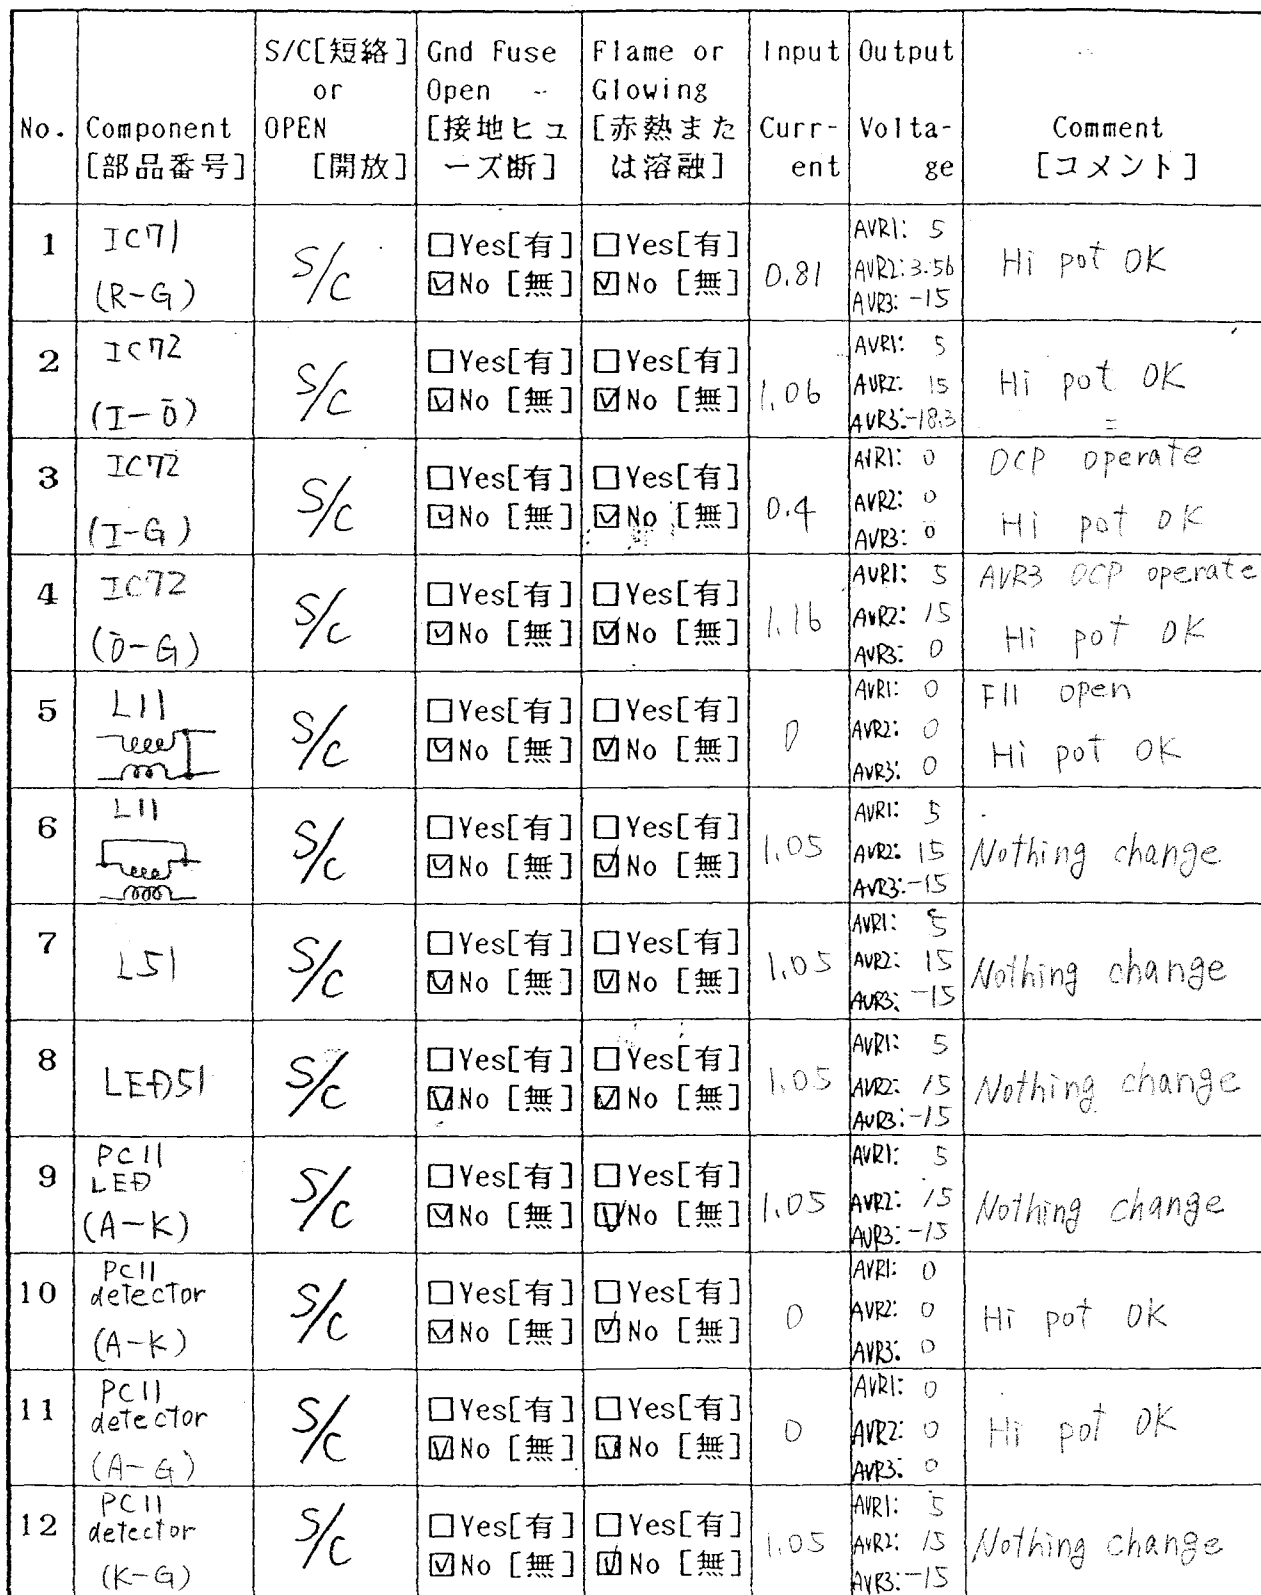 No.
Component
[部品番号]
S/C[短絡]
or
OPEN
[開放]
Gnd Fuse
Open
[接地ヒュ
ーズ断]
Flame or
Glowing
[赤熱また
は溶融]
Input
Curr-
ent
Output
Volta-
ge
Comment
[コメント]
1
IC71
(R-G)
S/C
□Yes[有]
☑No [無]
□Yes[有]
☑No [無]
0.81
AVR1: 5
AVR2: 3.56
AVR3: -15
Hi pot OK
2
IC72
(I-O)
S/C
□Yes[有]
☑No [無]
□Yes[有]
☑No [無]
1.06
AVR1: 5
AVR2: 15
AVR3: -18.3
Hi pot OK
3
IC72
(I-G)
S/C
□Yes[有]
☑No [無]
□Yes[有]
☑No [無]
0.4
AVR1: 0
AVR2: 0
AVR3: 0
OCP operate
Hi pot OK
4
IC72
(O-G)
S/C
□Yes[有]
☑No [無]
□Yes[有]
☑No [無]
1.16
AVR1: 5
AVR2: 15
AVR3: 0
AVR3 OCP operate
Hi pot OK
5
L11
S/C
□Yes[有]
☑No [無]
□Yes[有]
☑No [無]
0
AVR1: 0
AVR2: 0
AVR3: 0
F11 open
Hi pot OK
6
L11
S/C
□Yes[有]
☑No [無]
□Yes[有]
☑No [無]
1.05
AVR1: 5
AVR2: 15
AVR3: -15
Nothing change
7
L51
S/C
□Yes[有]
☑No [無]
□Yes[有]
☑No [無]
1.05
AVR1: 5
AVR2: 15
AVR3: -15
Nothing change
8
LED51
S/C
□Yes[有]
☑No [無]
□Yes[有]
☑No [無]
1.05
AVR1: 5
AVR2: 15
AVR3: -15
Nothing change
9
PC11
LED
(A-K)
S/C
□Yes[有]
☑No [無]
□Yes[有]
☑No [無]
1.05
AVR1: 5
AVR2: 15
AVR3: -15
Nothing change
10
PC11
detector
(A-K)
S/C
□Yes[有]
☑No [無]
□Yes[有]
☑No [無]
0
AVR1: 0
AVR2: 0
AVR3: 0
Hi pot OK
11
PC11
detector
(A-G)
S/C
□Yes[有]
☑No [無]
□Yes[有]
☑No [無]
0
AVR1: 0
AVR2: 0
AVR3: 0
Hi pot OK
12
PC11
detector
(K-G)
S/C
□Yes[有]
☑No [無]
□Yes[有]
☑No [無]
1.05
AVR1: 5
AVR2: 15
AVR3: -15
Nothing change